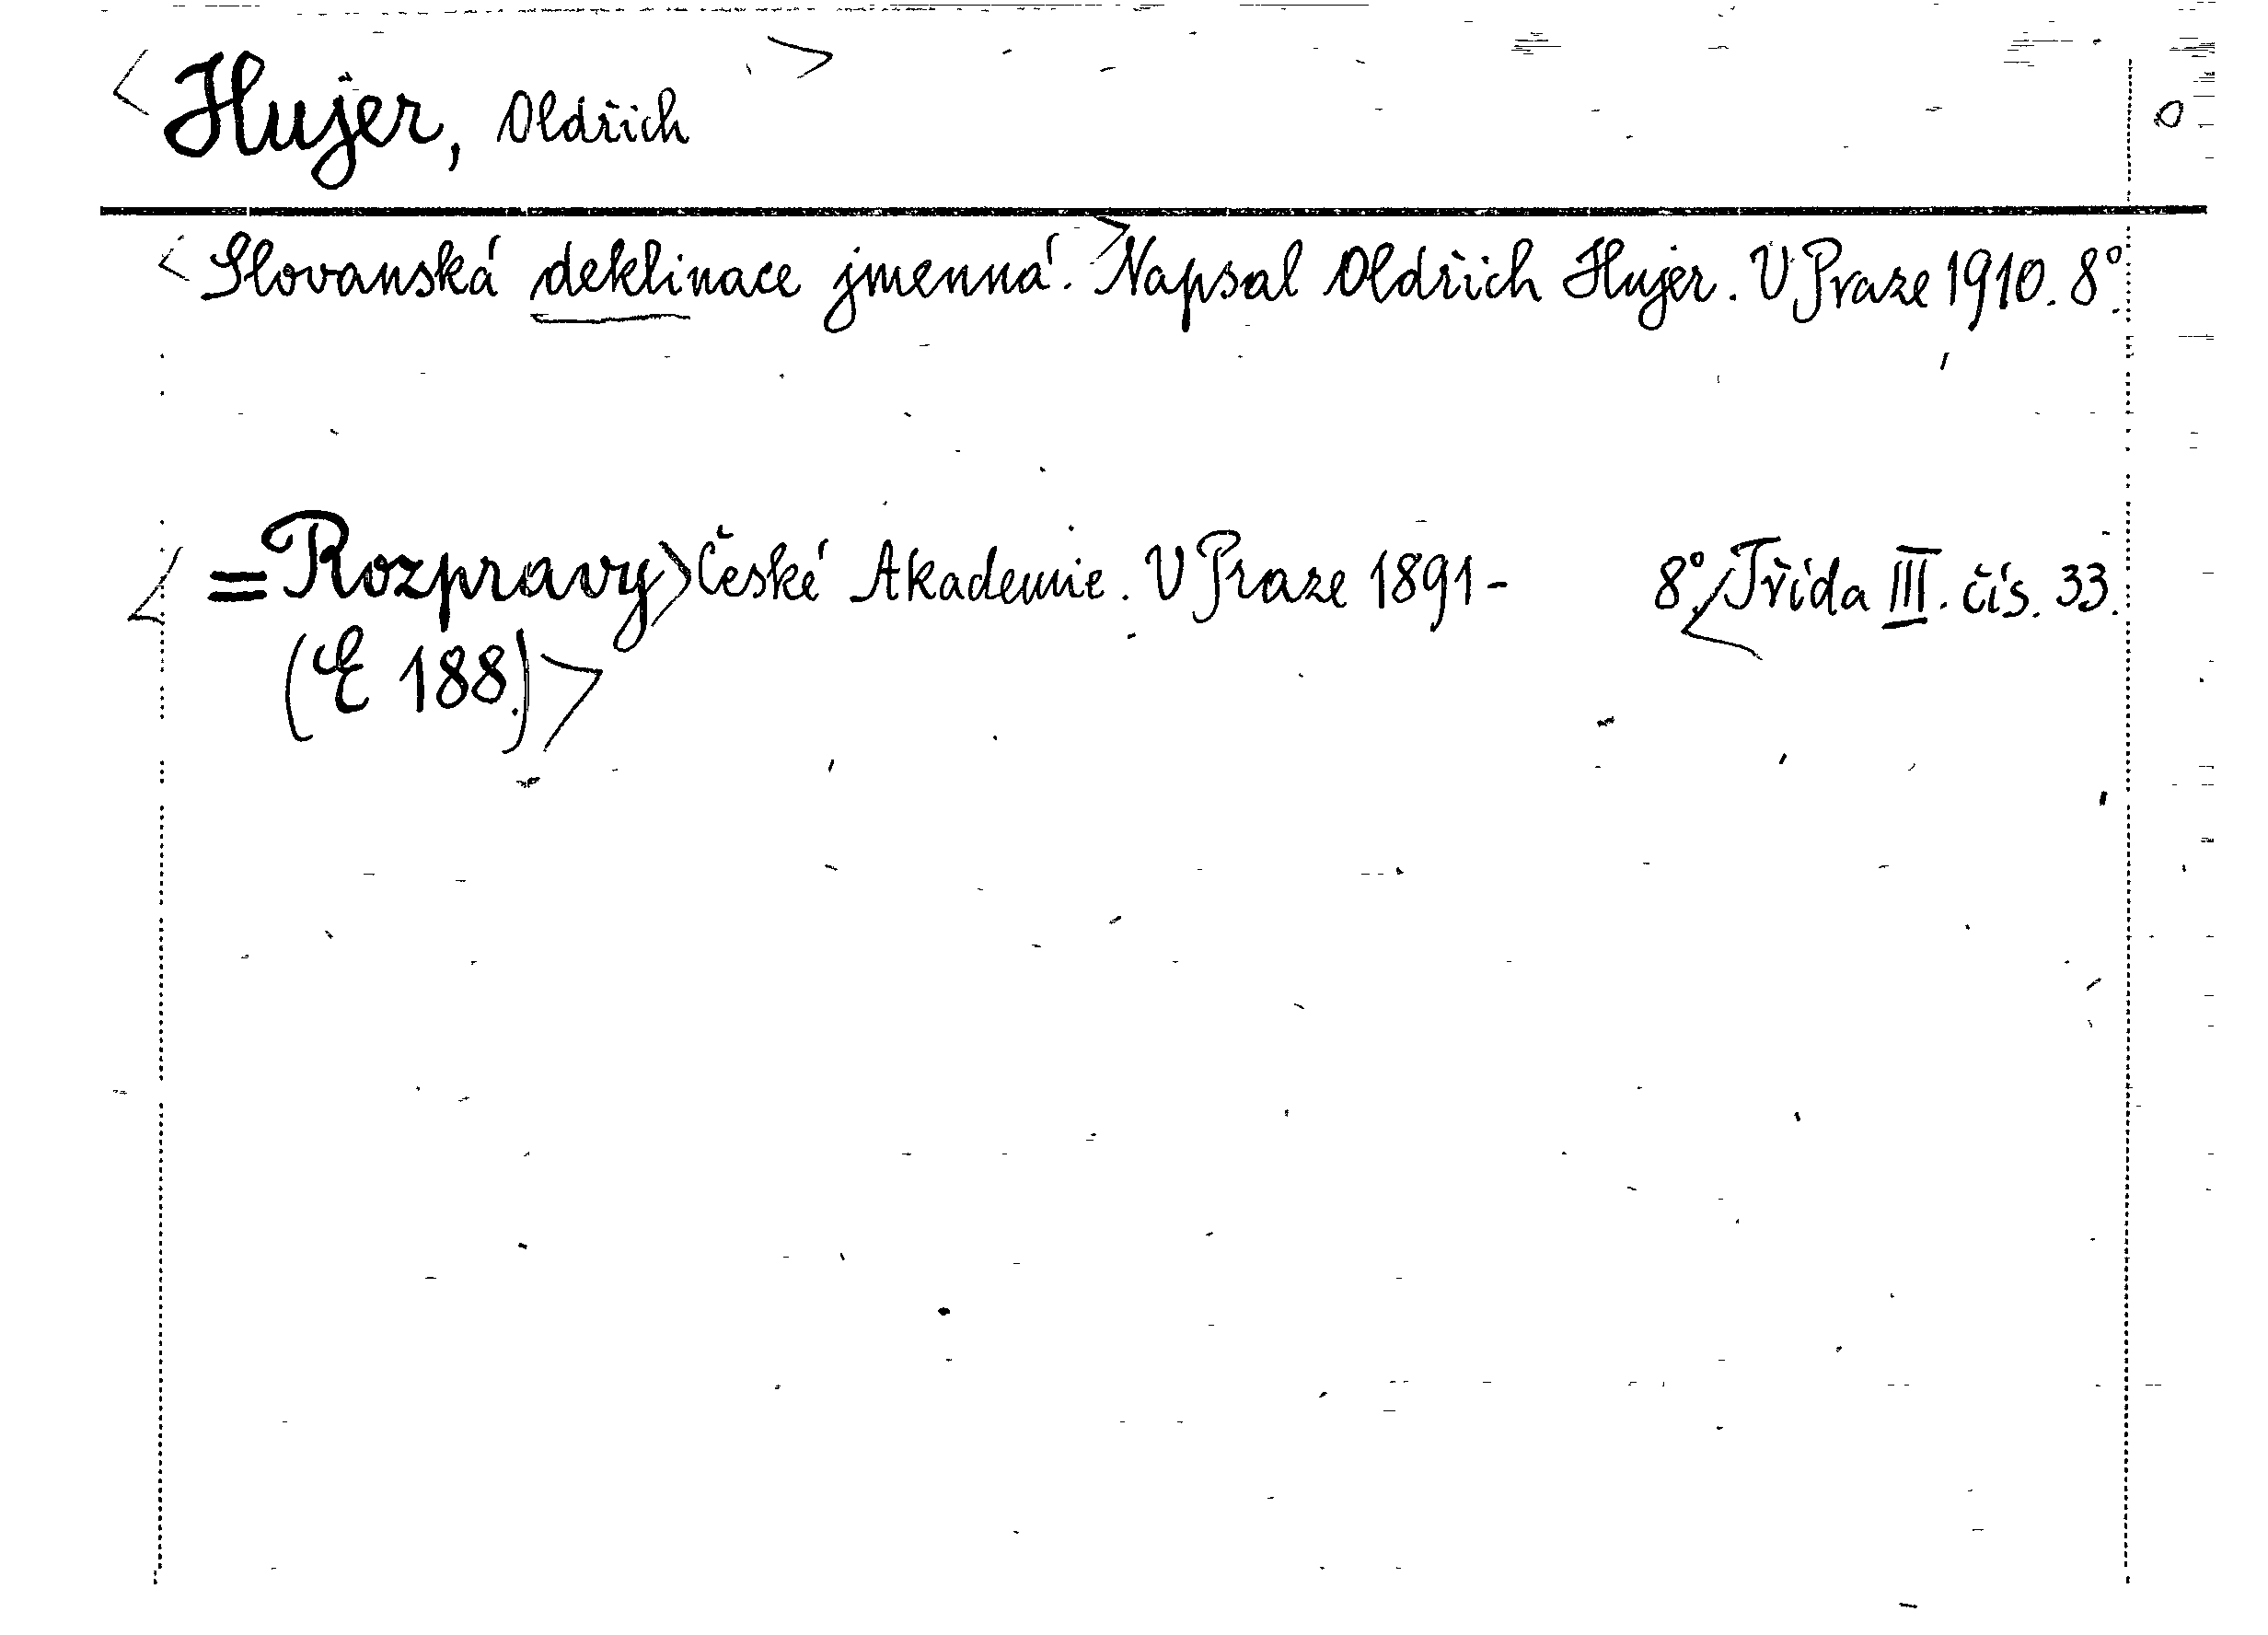 <Hujer, Oldřich> 0
<Slovanská deklinace jmenná.> Napsal Oldřich Hujer. V Praze 1910. 8°.
<=Rozpravy> České Akademie. V Praze 1891- 8°. <Třída III. čís. 33.
(E 188.)>